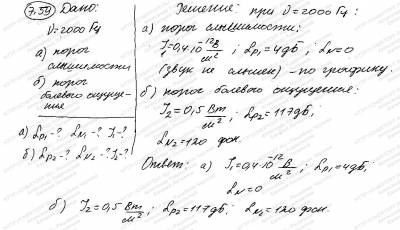 7.54 Дано:
ν=2000 Гц
а) порог
слышимости
б) порог
болевого ощуще-
ния
а) Lp1-? LN1-? I1-?
б) Lp2-? LN2-? I2-?
Решение: при ν=2000 Гц
а) порог слышимости:
I=0,4·10⁻¹² В/м²; Lp1=4дБ; LN=0
(звук не слышен) - по графику.
б) порог болевого ощущения:
I2=0,5 Вт/м²; Lp2=117дБ;
LN2=120 фон.
Ответ: а) I1=0,4·10⁻¹² В/м²; Lp1=4дБ,
LN=0
б) I2=0,5 Вт/м²; Lp2=117дБ; LN2=120 фон.